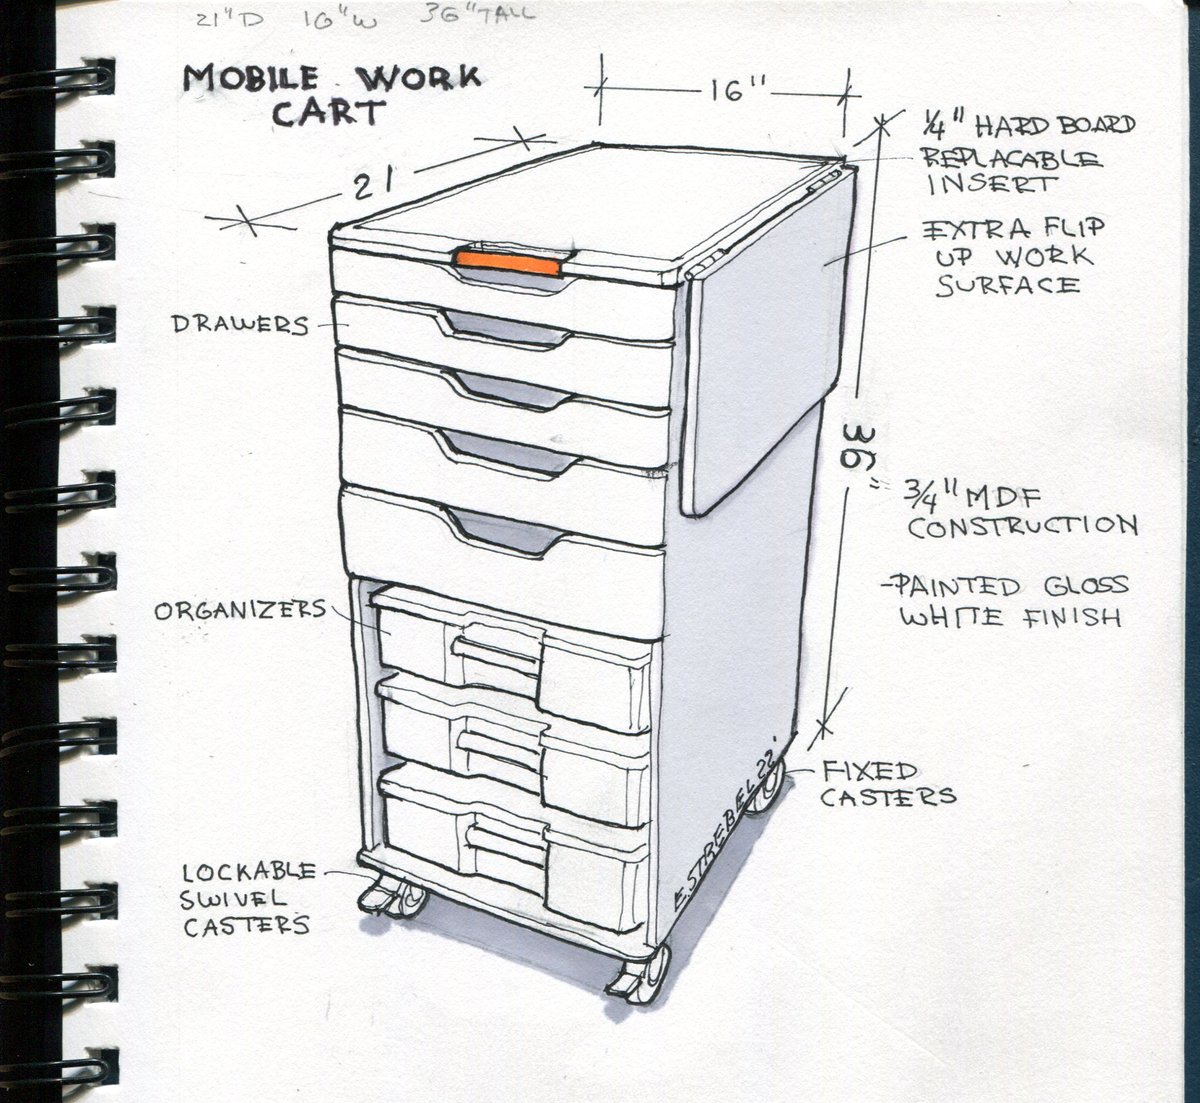 21"D 16"W 36"TALL
MOBILE WORK
CART
16"
21'
1/4" HARD BOARD
REPLACABLE
INSERT
EXTRA FLIP
UP WORK
SURFACE
DRAWERS
36"
3/4" MDF
CONSTRUCTION
-PAINTED GLOSS
WHITE FINISH
ORGANIZERS
FIXED
CASTERS
E.STREBEL 22'
LOCKABLE
SWIVEL
CASTERS